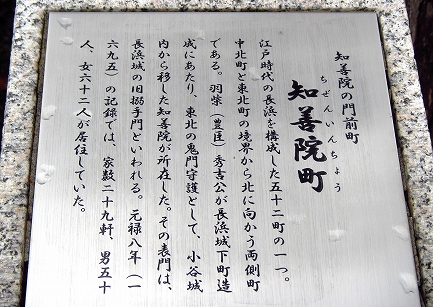 知善院の門前町
ちぜんいんちょう
知善院町
江戸時代の長浜を構成した五十二町の一つ。
中北町と東北町の境界から北に向かう両側町
である。羽柴（豊臣）秀吉公が長浜城下町造
成にあたり、東北の鬼門守護として、小谷城
内から移した知善院が所在した。その表門は、
長浜城の旧搦手門といわれる。元禄八年（一
六九五）の記録では、家数二十九軒、男五十
人、女六十二人が居住していた。